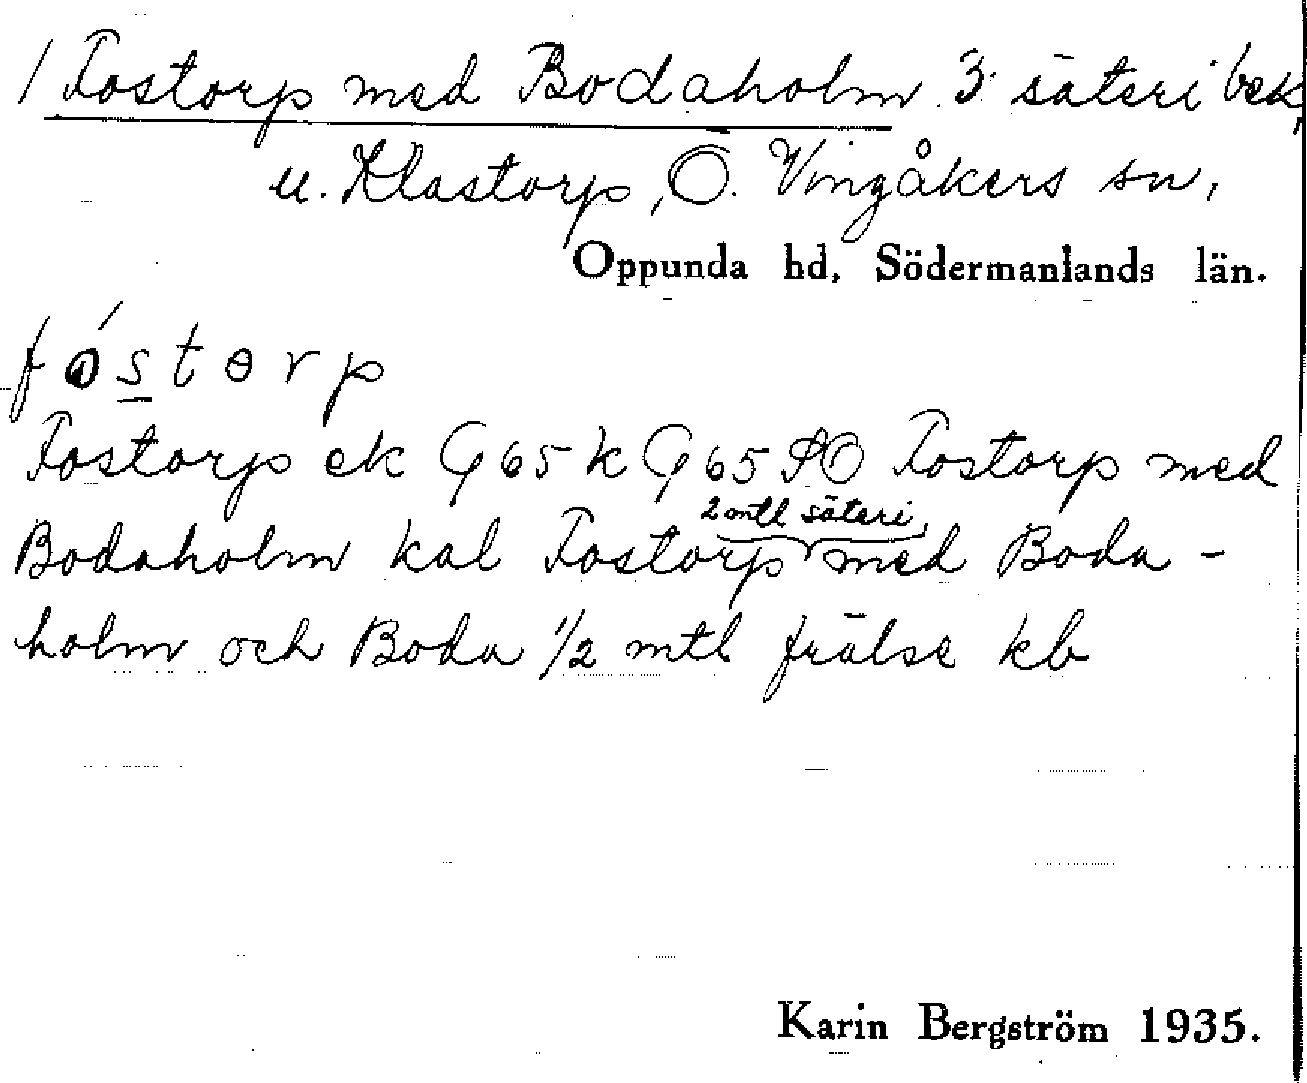 1 Fostorp med Bodaholm 3. säteri bek,
u. Klastorp, Ö. Vingåkers sn,
Oppunda hd, Södermanlands län.
fóstɵrp
Fostorp ek G 65 k G 65 SO Fostorp med
2 mtl säteri,
Bodaholm kal Fostorp med Boda-
holm och Boda 1/2 mtl frälse kb
Karin Bergström 1935.